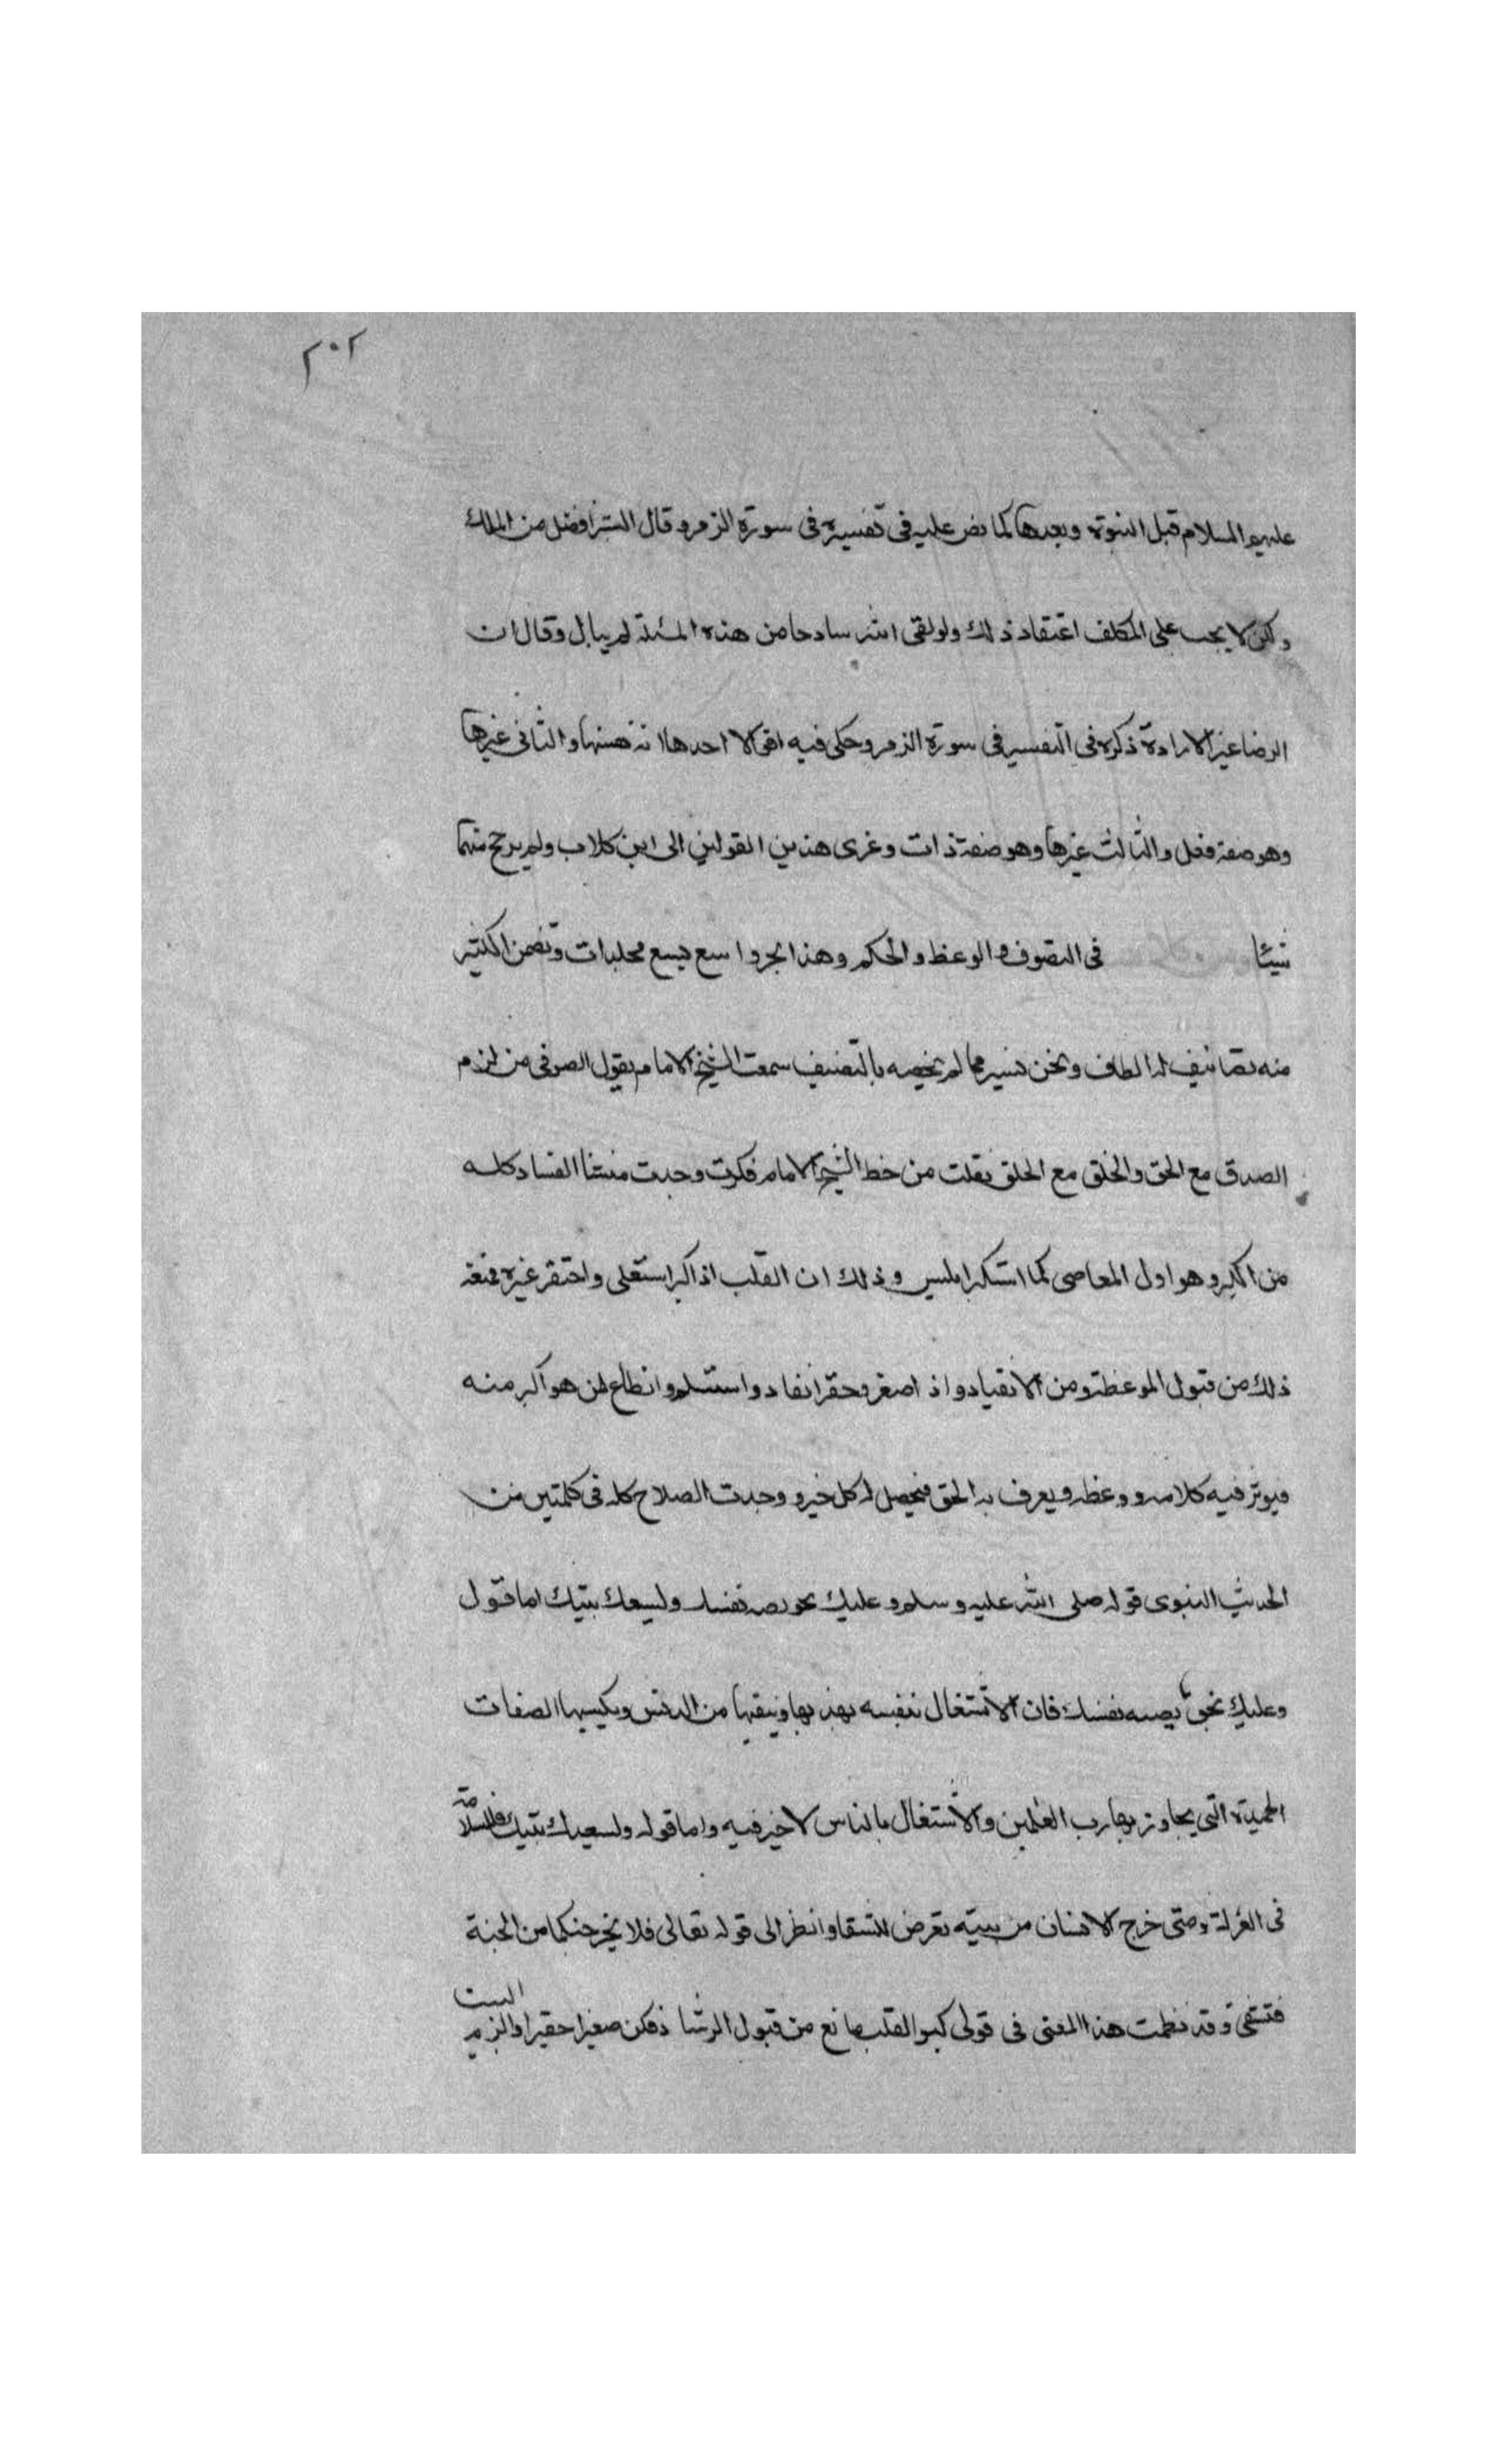 ٢٠٢
عليهم السلام قبل النبوة وبعدها كما نص عليه في تفسيره في سورة الزمر وقال البشر افضل من الملك
ولكن لا يجب على المكلف اعتقاد ذلك ولو لقى الله سادحا من هذه المسئلة لم يبال وقال ان
الرضا غير الارادة ذكره في التفسير في سورة الزمر وحكى فيه اقوالا احدها انه نفسها والثاني غيرها
وهو صفة فعل والثالث غيرها وهو صفة ذات وعزى هذين القولين الى ابن كلاب ولم يرجح منهما
شيئا في التصوف والوعظ والحكم وهذا بحر واسع يسع مجلدات وتضمن الكثير
منه تصانيف له الطاف ونحن نسير مما لم يخصه بالتصنيف سمعت الشيخ الامام يقول الصوفي من لزم
الصدق مع الحق والخلق مع الخلق نقلت من خط الشيخ الامام فكرت وجدت منشأ الفساد كله
من الكبر وهو اول المعاصي كما استكبر ابليس وذلك ان القلب اذا كبر استعلى واحتقر غيره فمنعه
ذلك من قبول الموعظة ومن الانقياد واذا صغر وحقر انقاد واستسلم وانطاع لمن هو اكبر منه
فيوثر فيه كلامه ووعظه ويعرف به الحق فيحصل له كل خير ووجدت الصلاح كله في كلمتين من
الحديث النبوي قوله صلى الله عليه وسلم وعليك بحويصه نفسك وليسعك بيتك اما قول
وعليك بخويصه نفسك فان الاشتغال بنفسه يهذبها وينقيها من الدنس ويكسبها الصفات
الحميدة التي يجاوز بها رب العلمين والاشتغال بالناس لا خير فيه واما قوله وليسعك بيتك فالسلامة
في العزلة ومتى خرج الانسان من بيته تعرض للشقا وانظر الى قوله تعالى فلا يخرجنكما من الجنة
فتشقى وقد نظمت هذا المعنى في قولي كبر القلب مانع من قبول الرشا دفكن صغيرا حقيرا والزم البيت